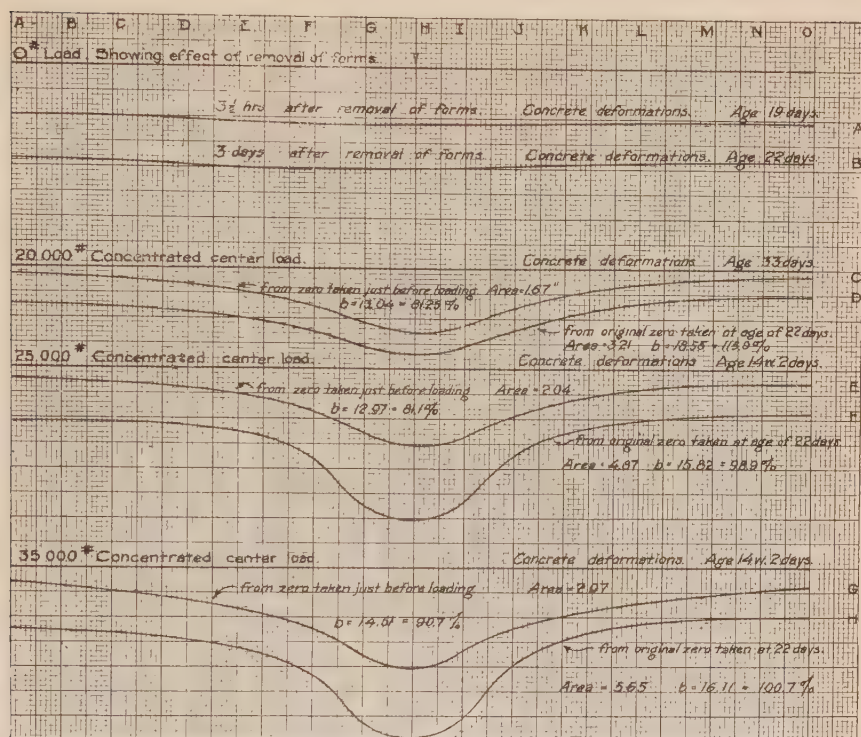 A B C D E F G H I J K L M N O
0# Load. Showing effect of removal of forms.
3½ hrs after removal of forms. Concrete deformations. Age 19 days.
A
3 days after removal of forms. Concrete deformations. Age 22 days.
B
20,000# Concentrated center load. Concrete deformations Age 33 days.
C
from zero taken just before loading Area=1.67"
D
b=13.04 = 81.25%
from original zero taken at age of 22 days.
Area=3.21 b=18.55 = 115.9%
25,000# Concentrated center load. Concrete deformations Age 14w. 2days.
E
from zero taken just before loading Area=2.04
b=12.97=81.1%
F
from original zero taken at age of 22 days
Area=4.87 b=15.82=98.9%
35000# Concentrated center load. Concrete deformations. Age 14w. 2 days.
from zero taken just before loading Area=2.97
G
b=14.51=90.7%
H
from original zero taken at 22 days.
Area=5.65 b=16.11=100.7%